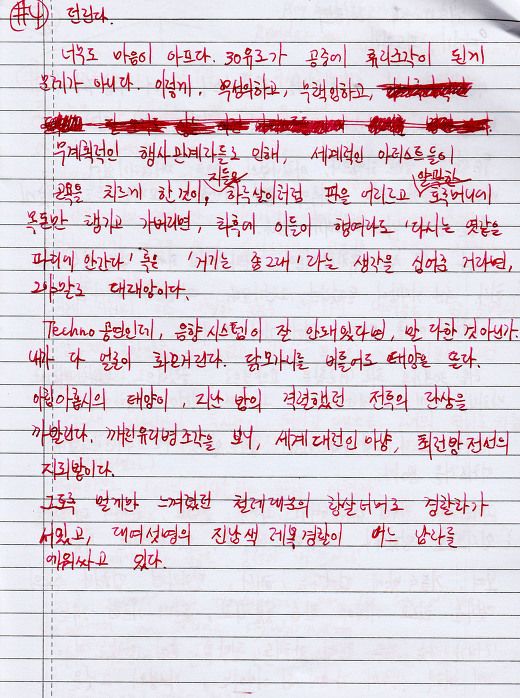 #4) 던진다.
너무도 마음이 아프다. 30유로가 공중에 휴리조각이 된게
문제가 아니다. 이렇게, 무성의하고, 무책임하고,
무계획적인 행사관계자들로 인해, 세계적인 아티스트들이
곤욕을 치르게 한 것이, 지들은 하루살이처럼 판을 어리고 알팍한 호주머니에
목돈만 챙기고 가버리면, 최후에 이들이 행여라도 '다시는 엿같을
파리에 안간다' 혹은 '거기는 좀 2래' 라는 생각을 심어준 거라면,
2야말로 대재앙이다.
Techno 공연인데, 음향시스템이 잘 안돼있다면, 말 다한 것 아닌가.
내가 다 얼굴이 화끈거린다. 닭모가지를 비틀어도 태양은 뜬다.
아침 아홉시의 태양이, 지난 밤의 격렬했던 전투의 잔상을
까발린다. 깨진유리병조각을 보니, 세계대전인 아냥, 최전방전선의
지뢰밭이다.
그토록 멀게만 느껴졌던 철제대문의 창살너머로 경찰차가
서있고, 대여섯명의 진남색 제복경찰이 어느 남자를
에워싸고 있다.